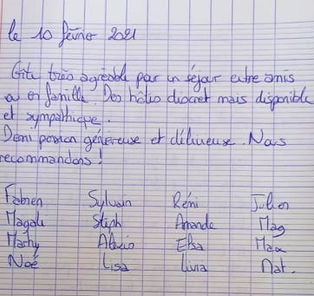 le 10 février 2021
Gîte très agréable par un séjour entre amis
ou en famille. Des hôtes discret mais disponible
et sympathique.
Demi pension généreuse et délicieuse. Nous
recommandons !
Fabien Sylvain Rémi Julien
Magali Steph Amande Mag
Mathy Alexis Elsa Max
Noé Lisa Livia Nat.